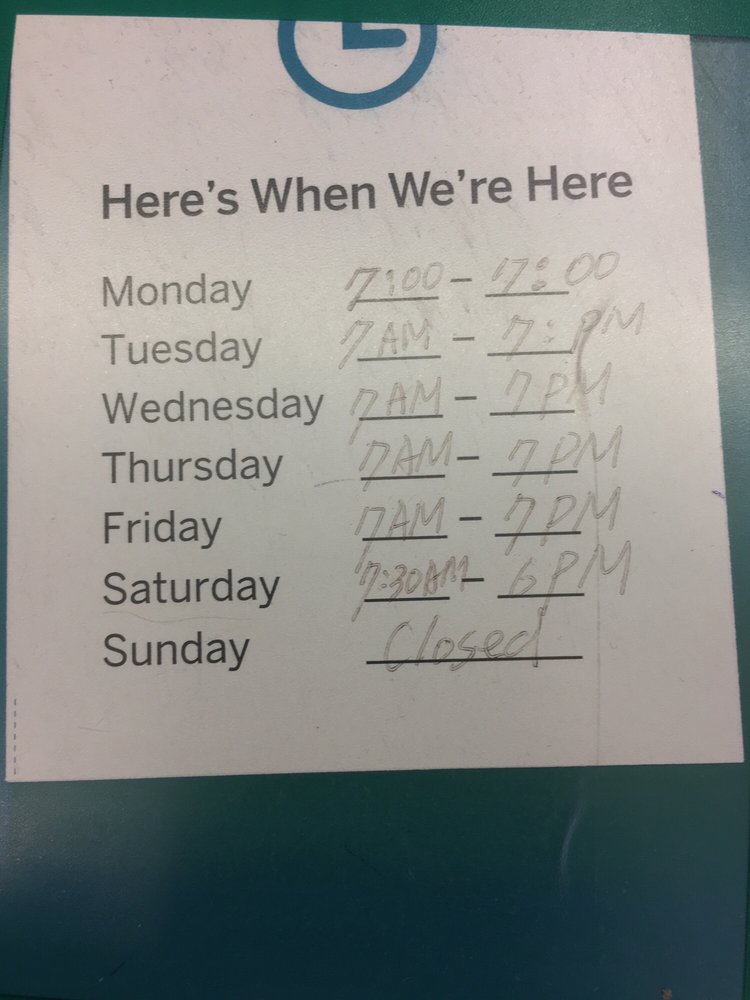 Here's When We're Here
Monday 7:00 - 7:00
Tuesday 7AM - 7:PM
Wednesday 7AM - 7PM
Thursday 7AM - 7PM
Friday 7AM - 7PM
Saturday 7:30AM - 6PM
Sunday Closed